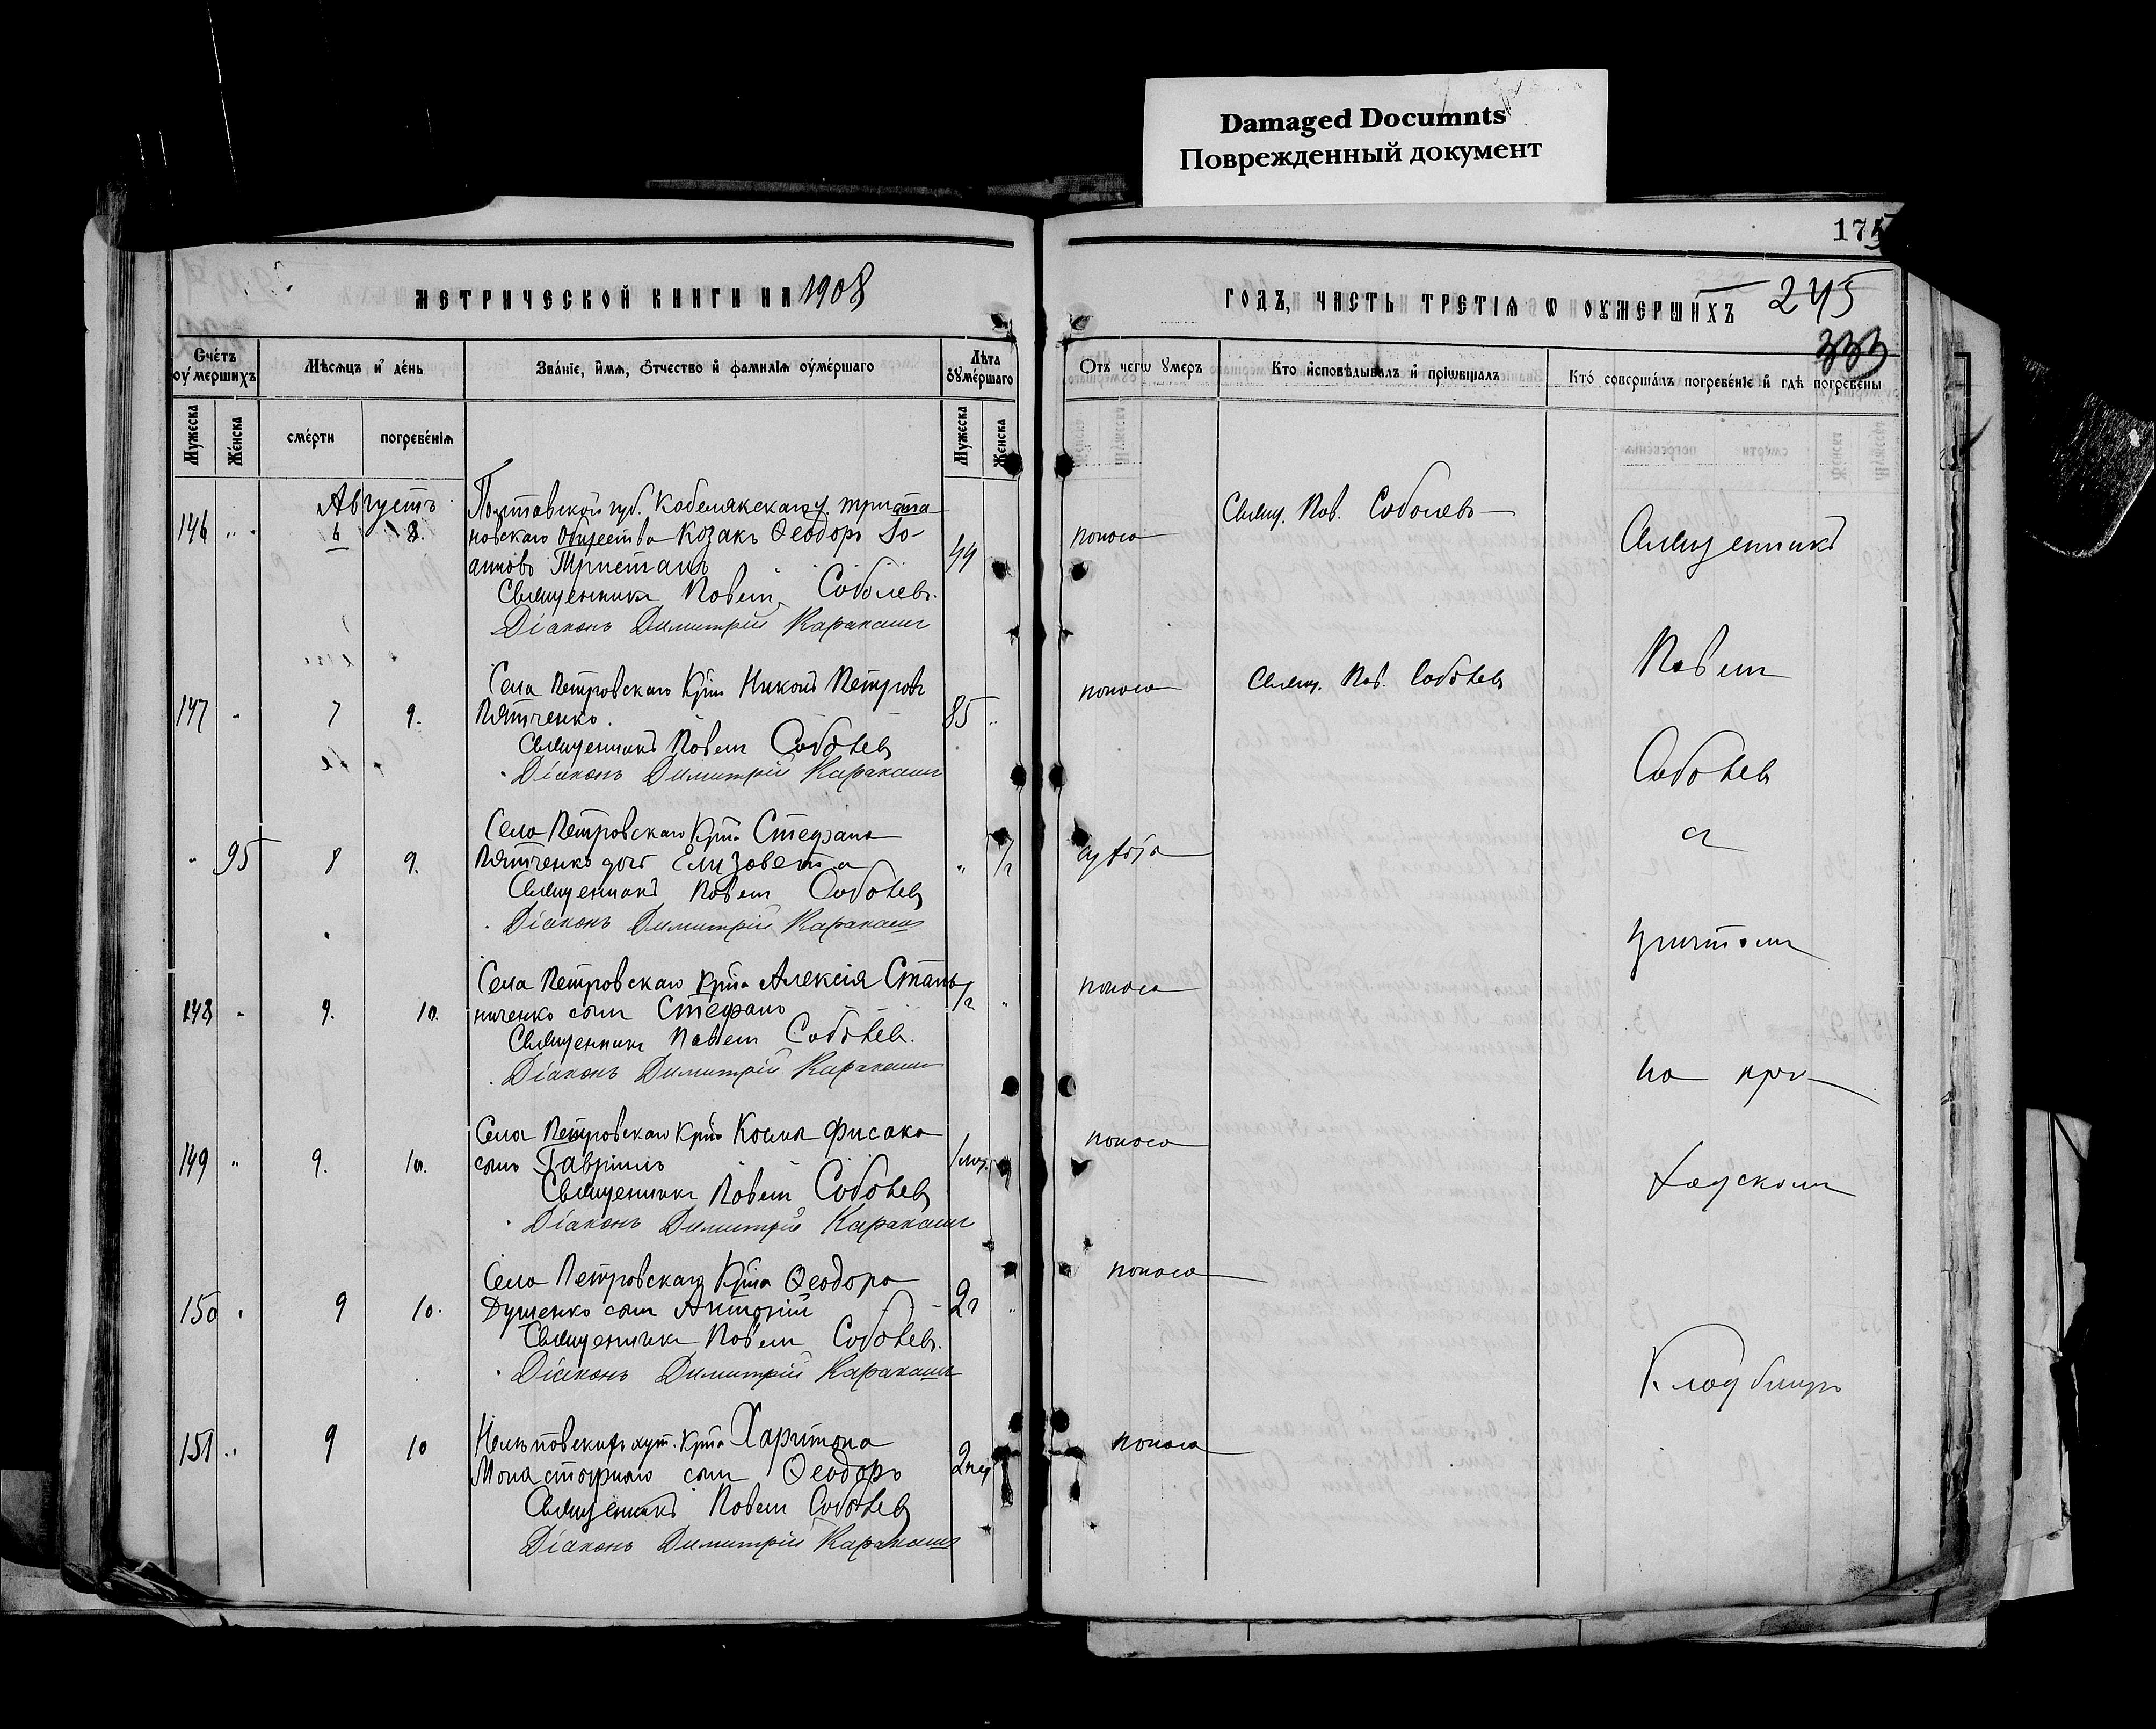 Damaged Documnts
Поврежденный документ
175
МЕТРИЧЕСКОЙ КНИГИ НА 1908
ГОДЪ, ЧАСТЬ ТРЕТІѦ Ѡ ОУМЕРШИХЪ 245
333
Счетъ оумершихъ
Мѣсяцъ и день
Званіе, имя, отчество и фамилія оумершаго
Лѣта оумершаго
Отъ чегѡ умеръ
Кто исповѣдывалъ и пріѡбщалъ
Кто совершалъ погребеніе и гдѣ погребены
Мужеска
Женска
смерти
погребенія
Мужеска
Женска
Августъ
Полтавской губ. Кобелякскаго у. Триста
146 " 6 8. новскаго общества Козакъ Ѳеодоръ Іо- 44 поноса Свящ. Пав. Соболевъ
анновъ Тристанъ
Священникъ Павелъ Соболевъ.
Діаконъ Димитрій Каракашъ
Села Петровскаго Кртн Никонъ Петровъ
147 " 7 9. Пятченко. 85 " поноса Свящ. Пав. Соболевъ
Священникъ Павелъ Соболевъ
Діаконъ Димитрій Каракашъ
Села Петровскаго Крт. Стефана
" 95 8 9. Пятченко дочь Елизавета " 1/2
Священникъ Павелъ Соболевъ
Діаконъ Димитрій Каракашъ
Села Петровскаго Крт. Алексія Стань
148 " 9. 10. ниченко сынъ Стефанъ 1/2 " поноса
Священникъ Павелъ Соболевъ.
Діаконъ Димитрій Каракашъ
Села Петровскаго Крт. Косма Фисака
149 " 9. 10. сынъ Гавріилъ поноса
Священникъ Павелъ Соболевъ
Діаконъ Димитрій Каракашъ
Села Петровскаго Крт. Ѳеодора
150 " 9 10. Душенко сынъ Антоній 2г " поноса
Священникъ Павелъ Соболевъ.
Діаконъ Димитрій Каракашъ
хут. Крт. Харитона
151 " 9 10 сынъ Ѳеодоръ 2 нед поноса
Священникъ Павелъ Соболевъ
Діаконъ Димитрій Каракашъ
Священникъ
Павелъ
Соболевъ
с
причтомъ
на при-
ходскомъ
Кладбищѣ